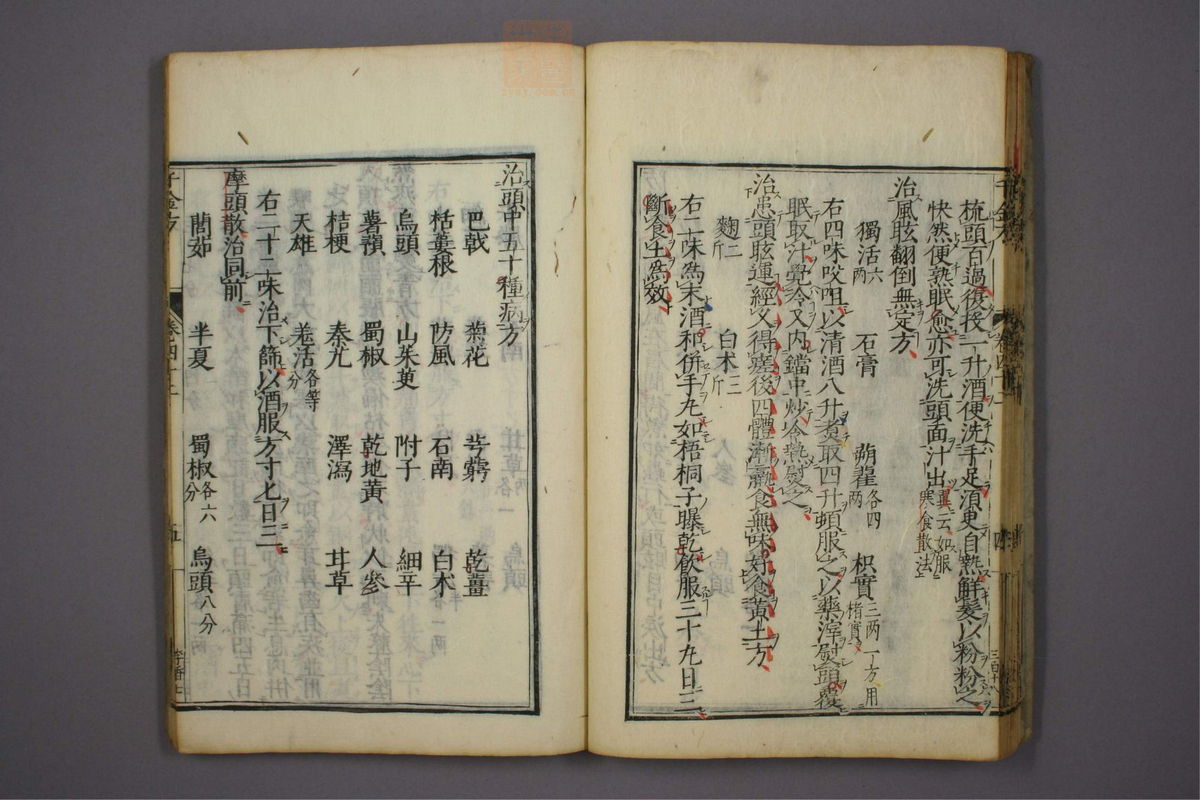 梳頭百過復投一升酒便洗手足須臾自熱解髮以粉粉之
快然便熟眠愈亦可洗頭面汁出翼云如服寒食散法
治風眩翻倒無定方
獨活六兩 石膏 蒴藋各四兩 枳實三兩一方用楮實
右四味㕮咀以清酒八升煮取四升頓服之以藥滓熨頭覆
眠取汁覺冷又内鐺中炒令熱熨之
治患頭眩運經久得瘥後四體漸羸食無味好食黃土方
麴二斤 白朮三斤
右二味爲末酒和併手丸如梧桐子曝乾飲服三十丸日三
斷食土爲效
治頭中五十種病方
巴戟 菊花 芎藭 乾薑
栝蔞根 防風 石南 白朮
烏頭 山茱萸 附子 細辛
薯蕷 蜀椒 乾地黃 人參
桔梗 秦艽 澤瀉 甘草
天雄 羌活各等分
右二十二味治下篩以酒服方寸匕日三
摩頭散治同前
䕡茹 半夏 蜀椒各六分 烏頭八分